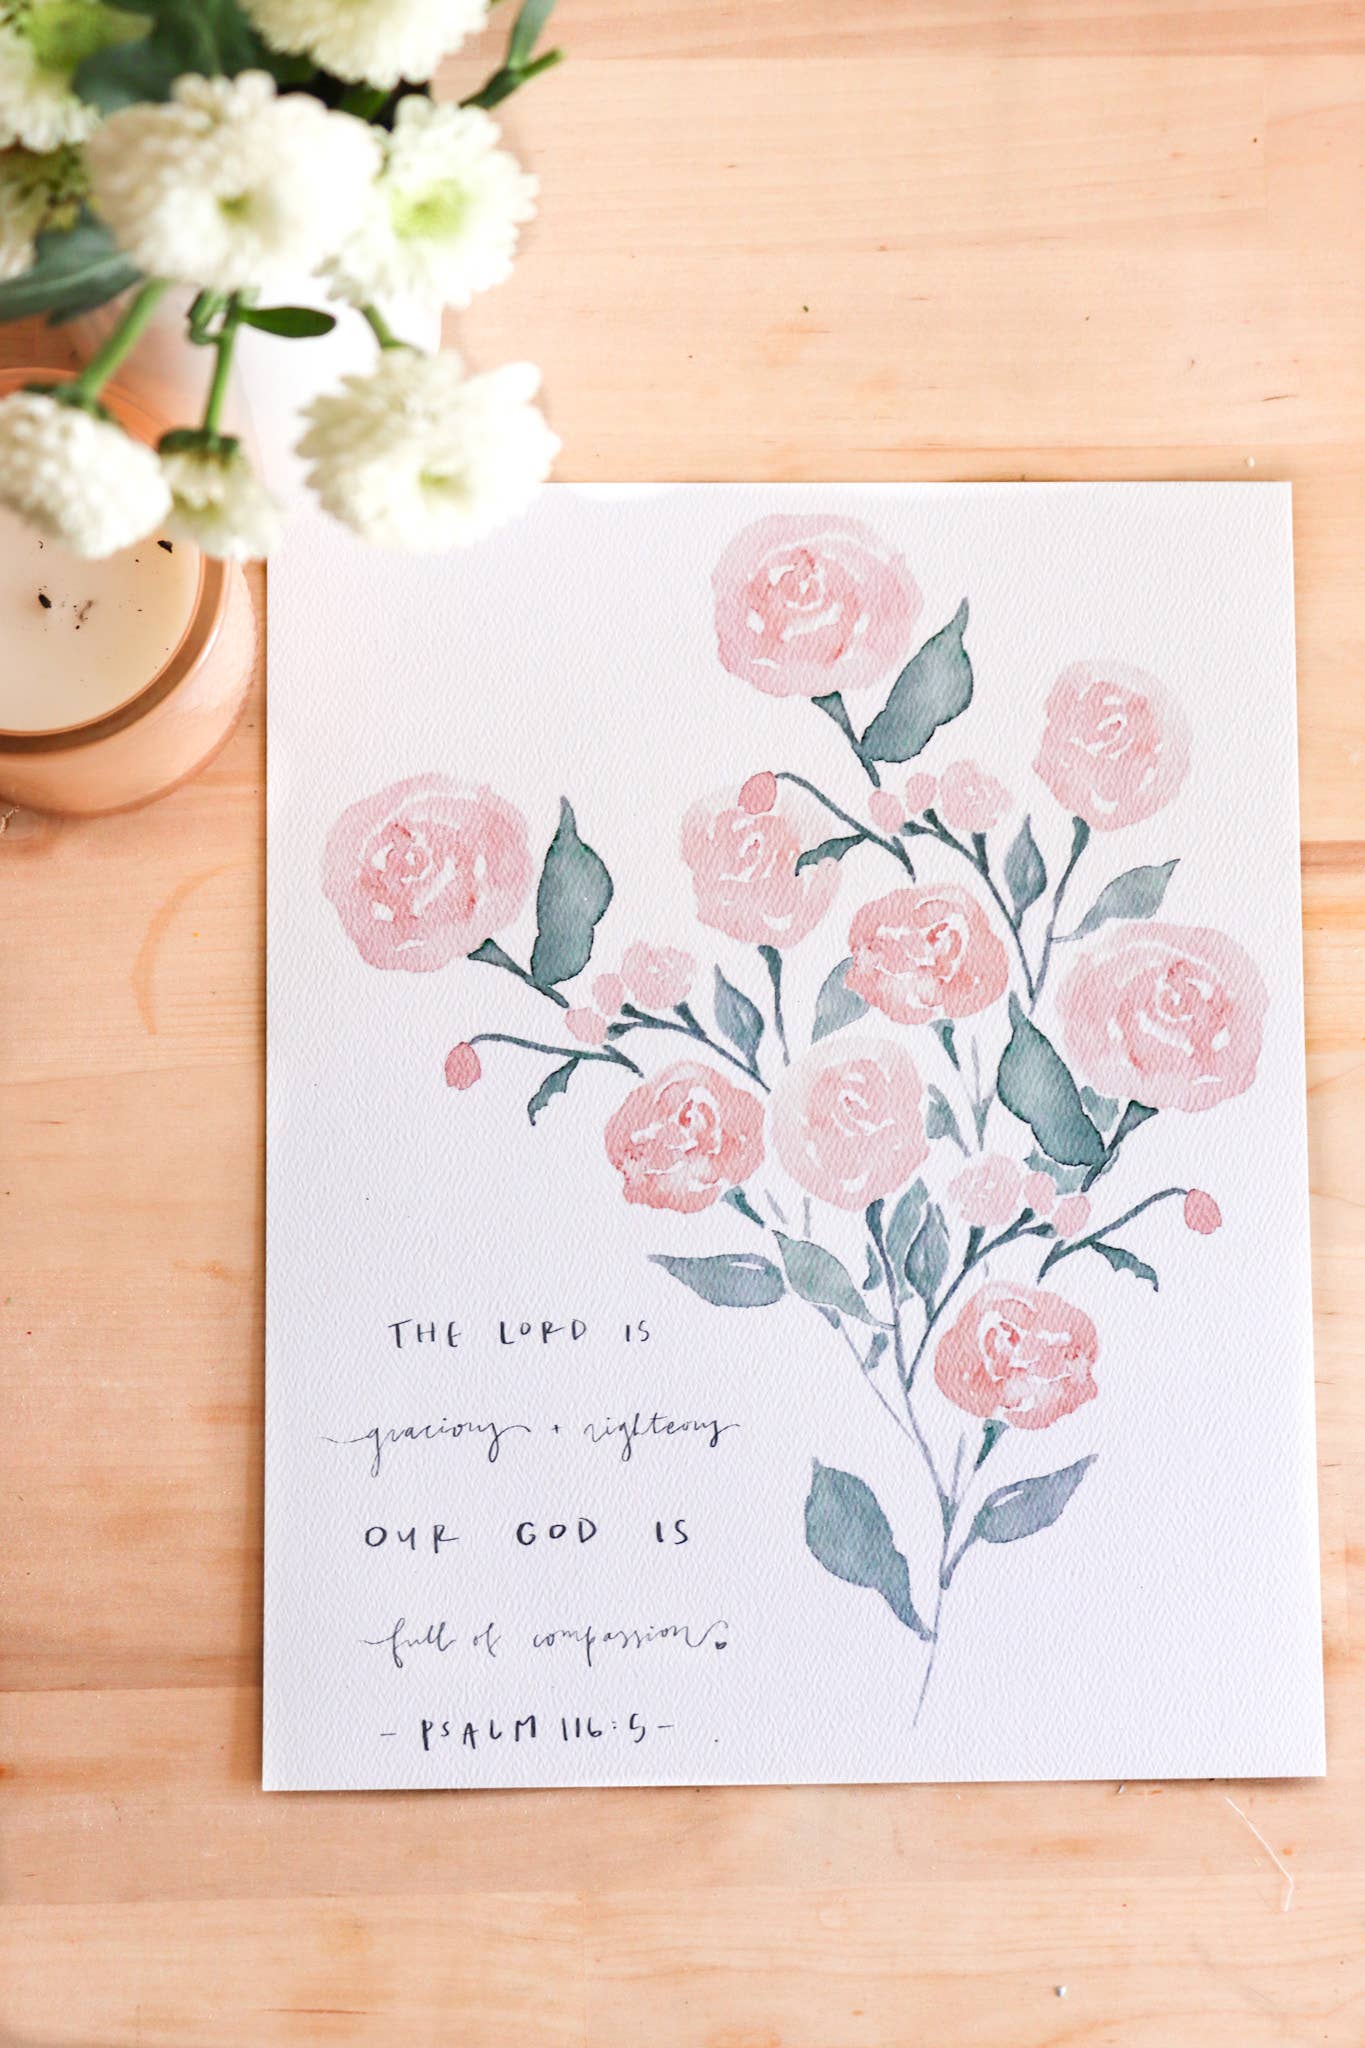 THE LORD IS
gracious + righteous
OUR GOD IS
full of compassion.
- PSALM 116:5 -